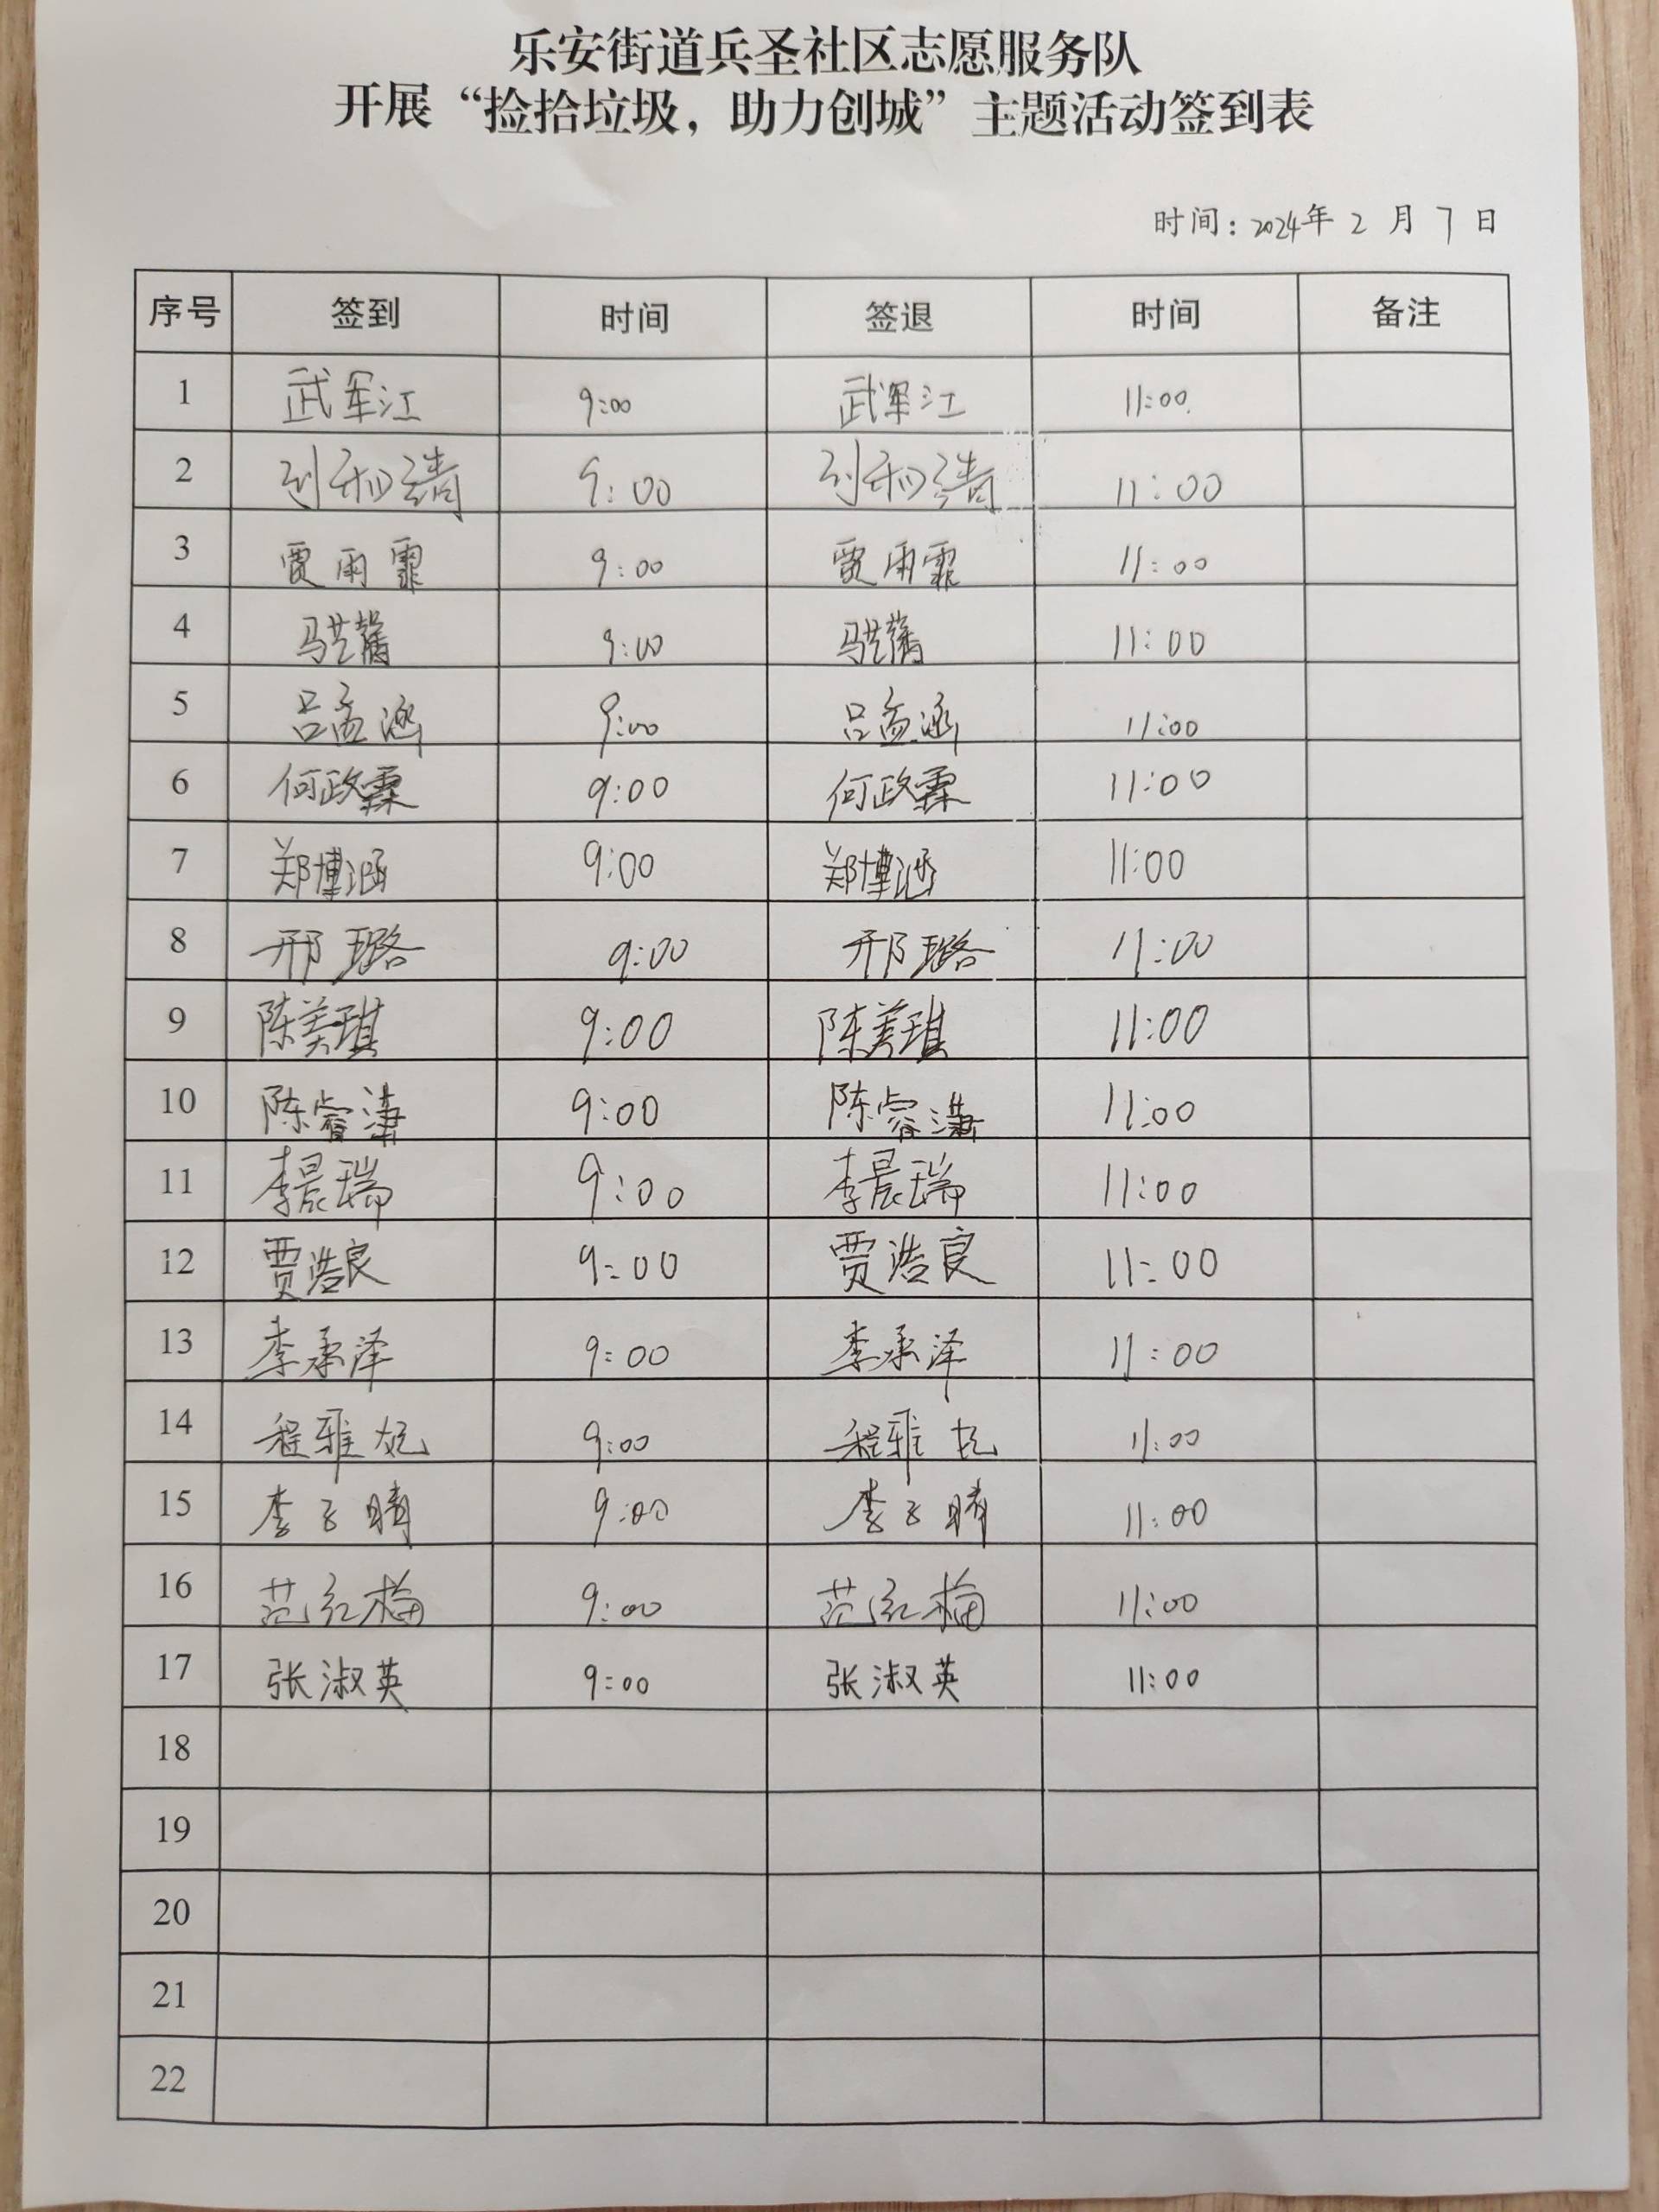 乐安街道兵圣社区志愿服务队
开展“捡拾垃圾，助力创城”主题活动签到表
时间：2024年 2 月 7 日
序号 签到 时间 签退 时间 备注
1 武军江 9:00 武军江 11:00
2 刘和绮 9:00 刘和绮 11:00
3 贾雨霏 9:00 贾雨霏 11:00
4 马艺菡 9:00 马艺菡 11:00
5 吕孟涵 9:00 吕孟涵 11:00
6 何政霖 9:00 何政霖 11:00
7 郑博涵 9:00 郑博涵 11:00
8 邢璐 9:00 邢璐 11:00
9 陈美琪 9:00 陈美琪 11:00
10 陈睿潇 9:00 陈睿潇 11:00
11 李晨瑞 9:00 李晨瑞 11:00
12 贾浩良 9:00 贾浩良 11:00
13 李承泽 9:00 李承泽 11:00
14 程雅 9:00 程雅 11:00
15 李子晴 9:00 李子晴 11:00
16 范红梅 9:00 范红梅 11:00
17 张淑英 9:00 张淑英 11:00
18
19
20
21
22